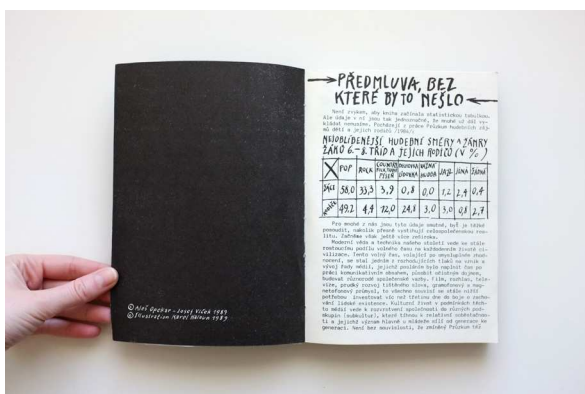 © Aleš Opekar - Josef Vlček 1989
© Illustration Karel Haloun 1989
PŘEDMLUVA, BEZ
KTERÉ BY TO NEŠLO
Není zvykem, aby kniha začínala statistickou tabulkou.
Ale údaje v ní jsou tak jednoznačné, že mnohé už dál vy-
kládat nemusíme. Pocházejí z práce Průzkum hudebních záj-
mů dětí a jejich rodičů (1984):
NEJOBLÍBENĚJŠÍ HUDEBNÍ SMĚRY A ŽÁNRY
ŽÁKŮ 6.-8. TŘÍD A JEJICH RODIČŮ (V %)
POP ROCK COUNTRY FOLK, TRAMP. PÍSEŇ DECHOVKA LIDOVKA VÁŽNÁ HUDBA JAZZ JINÁ ŽÁDNÁ
58,0 33,3 3,9 0,8 0,0 1,2 2,4 0,4
RODIČE 49,2 4,4 12,0 24,8 3,0 3,0 0,8 2,7
Pro mnohé z nás jsou tyto údaje smutné, byť je těžké
posoudit, nakolik přesně vystihují celospolečenskou rea-
litu. Začněme však ještě více zeširoka.
Moderní věda a technika našeho století vede ke stále
rostoucímu podílu volného času na každodenním životě ci-
vilizace. Tento volný čas, volající po smysluplném zhod-
nocení, se stal jedním z rozhodujících tlaků na vznik a
vývoj řady médií, jejichž posláním bylo naplnit čas po
práci komunikativním obsahem, působit učitelům je danou,
budovat různorodé společenské vazby. Film, rozhlas, tele-
vize, prudký rozvoj tištěného slova, gramofonový a mag-
netofonový průmysl, to všechno souvisí se stále nižší
potřebou investovat víc než třetinu dne do boje o zacho-
vání lidské existence. Kulturní život v podmínkách těch-
to médií vede k rozvrstvení společnosti do různých pod-
skupin (subkultur), které tíhnou k relativní soběstačnos-
ti a jejichž význam hlavně u mládeže sílí od generace ke
generaci. Není bez souvislosti, že zmíněný Průzkum též